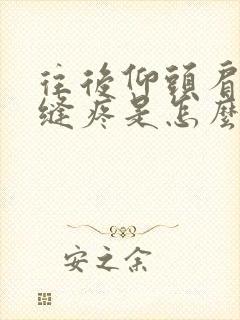 往後仰頭肩
縫疼是怎麼
安之余